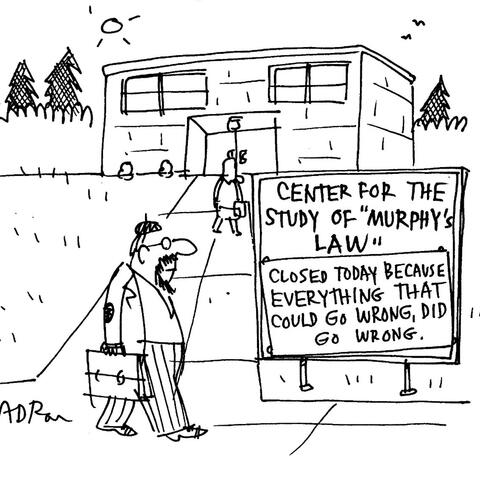 CENTER FOR THE
STUDY OF "MURPHY'S
LAW"
CLOSED TODAY BECAUSE
EVERYTHING THAT
COULD GO WRONG, DID
GO WRONG.